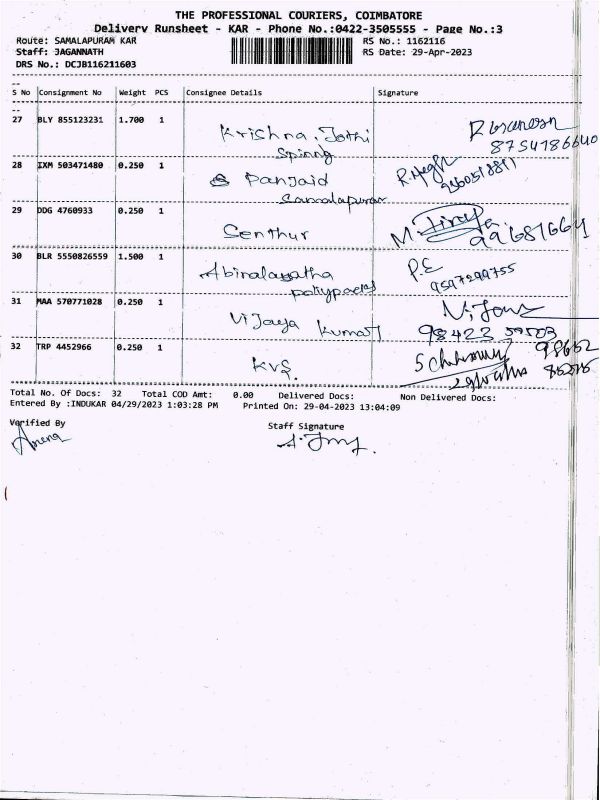 THE PROFESSIONAL COURIERS, COIMBATORE
Delivery Runsheet - KAR - Phone No.:0422-3505555 - Page No.:3
Route: SAMALAPURAM KAR RS No.: 1162116
Staff: JAGANNATH RS Date: 29-Apr-2023
DRS No.: DCJB116211603
S No Consignment No Weight PCS Consignee Details Signature
27 BLY 855123231 1.700 1
Krishna Jothi
Spinng
8754786640
28 IXM 503471480 0.250 1
Panjaid
Samalapuram
29 DDG 4760933 0.250 1
Senthur
M.
30 BLR 5550826559 1.500 1
Abinalayatha
polypacks
P.E
9597299755
31 MAA 570771028 0.250 1
Vijaya Kumar
98423 59503
32 TRP 4452966 0.250 1
KVS.
Total No. Of Docs: 32 Total COD Amt: 0.00 Delivered Docs: Non Delivered Docs:
Entered By :INDUKAR 04/29/2023 1:03:28 PM Printed On: 29-04-2023 13:04:09
Verified By Staff Signature